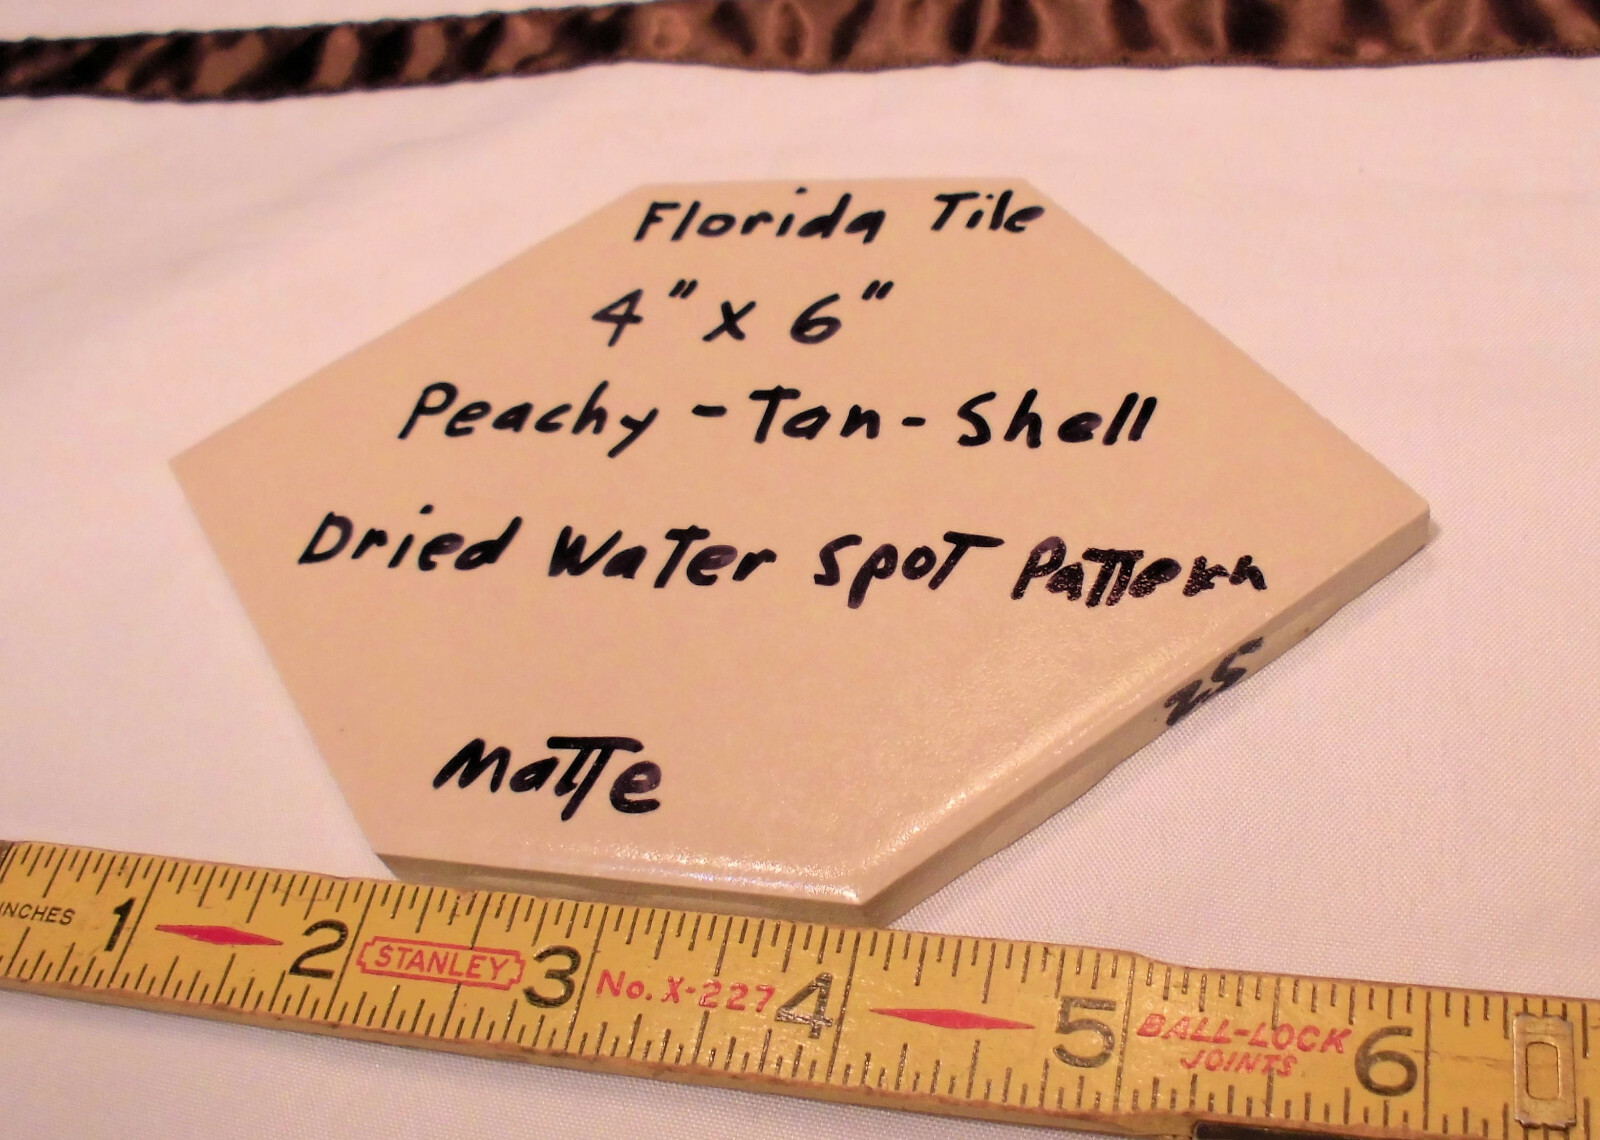 Florida Tile
4" x 6"
Peachy - Tan - Shell
Dried Water Spot Pattern
25
Matte
INCHES 1 2 STANLEY 3 No. X-227 4 5 BALL-LOCK JOINTS 6